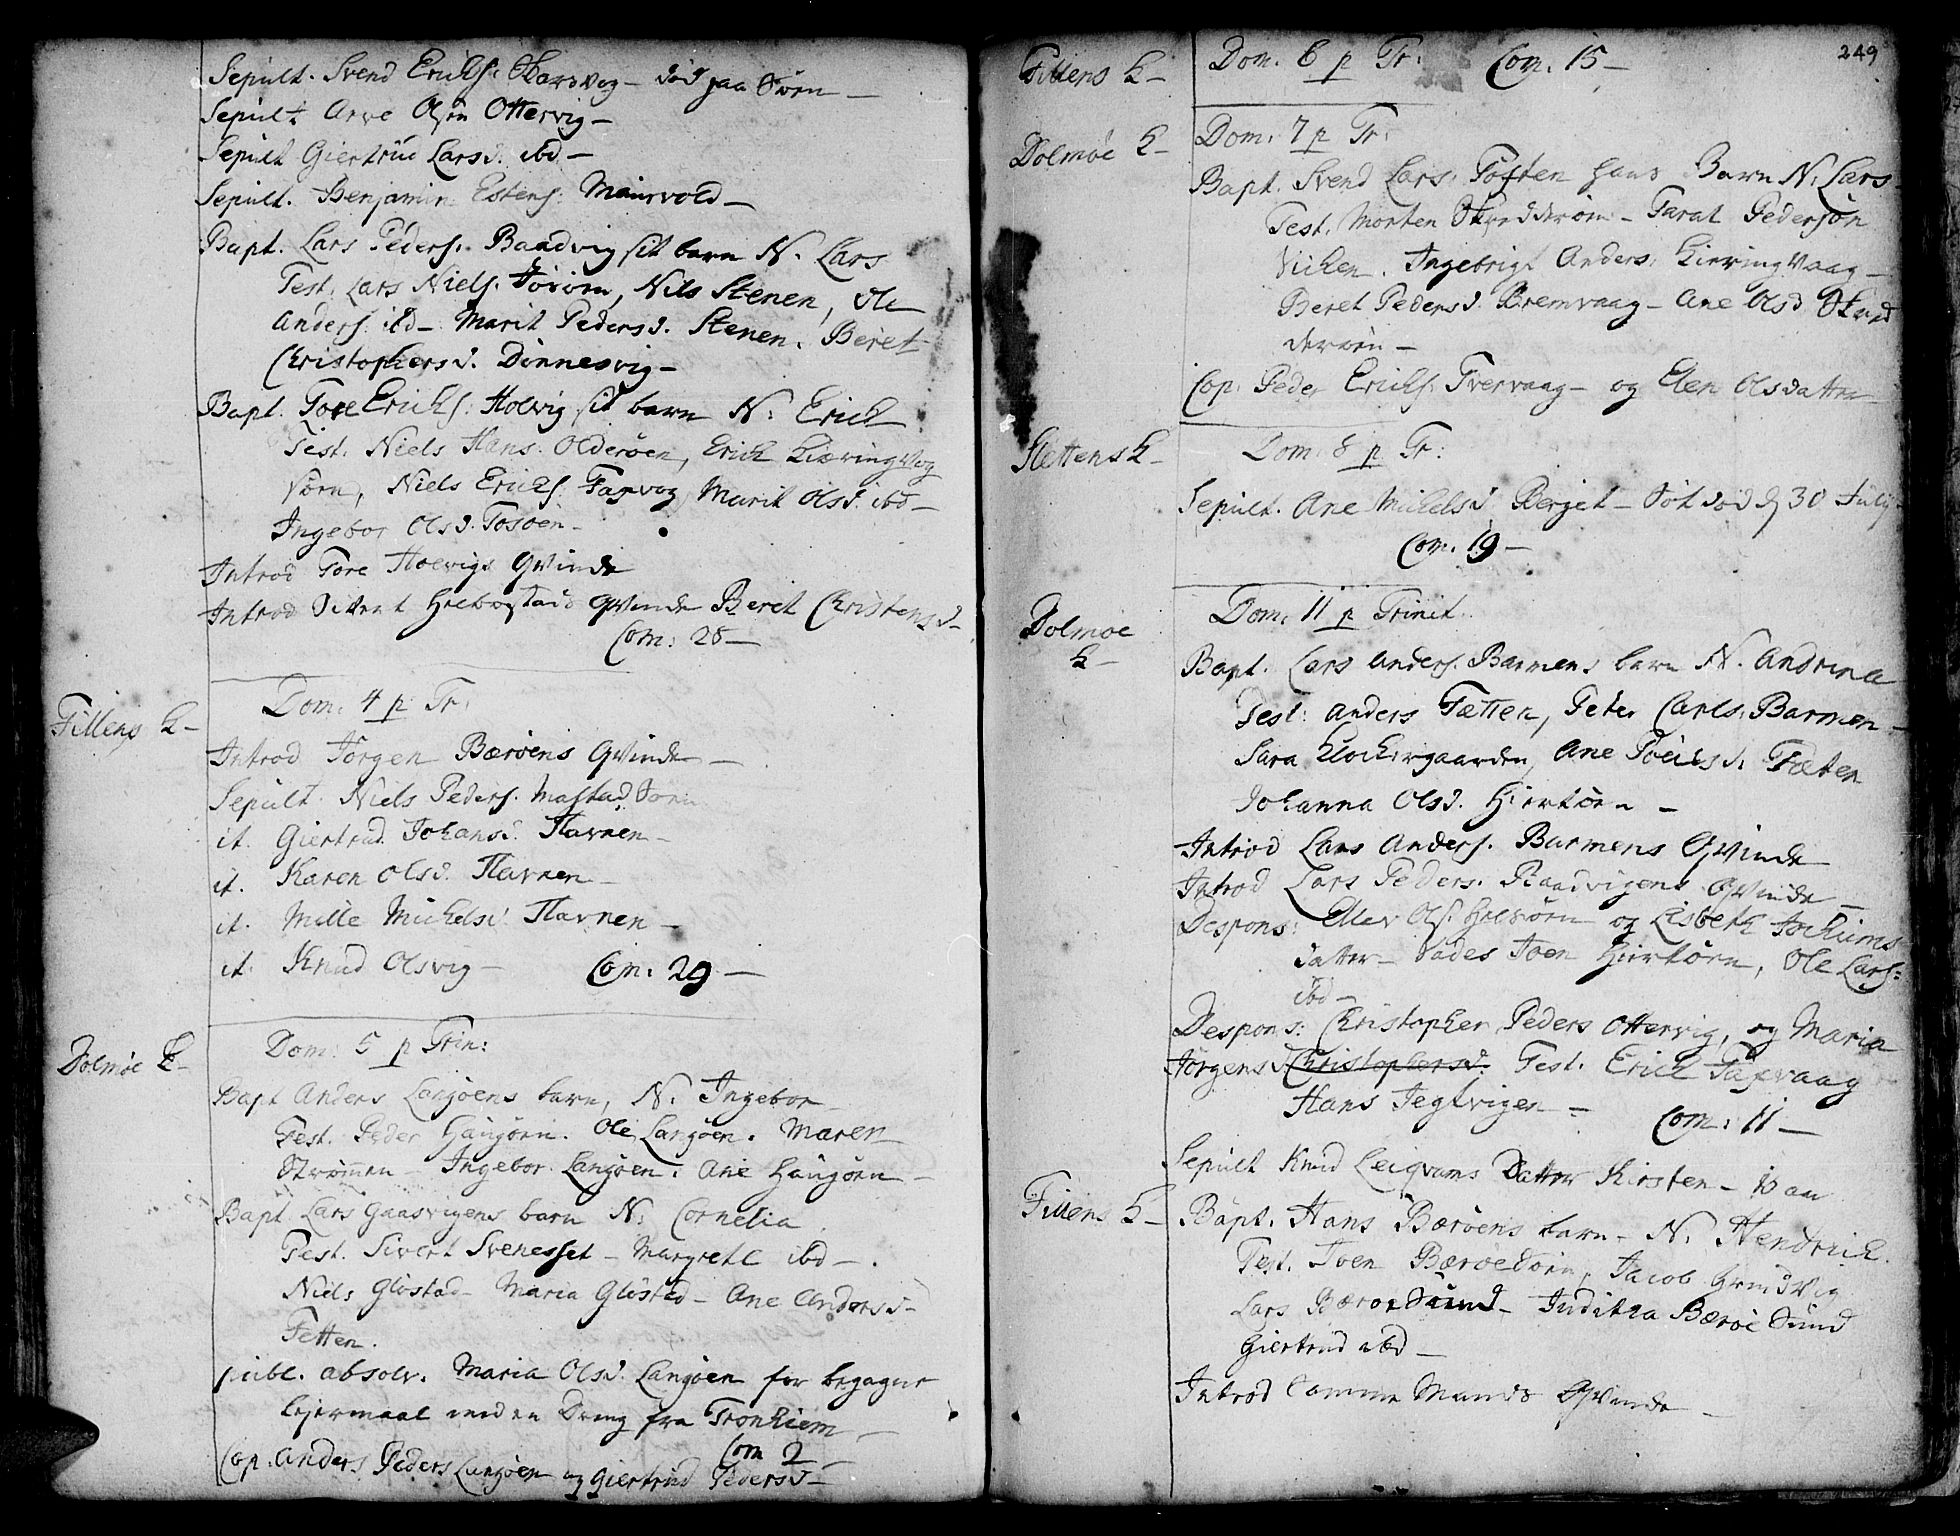 Sepult. Svend Erichs: død paa Søen —
Sepult Arve Olsøn Ottervig —
Sepult Giertrud Larsd. ibd —
Sepult. Benjamin Estens:
Bapt. Lars Peders. Baadvig sit barn N. Lars
Test. Lars Niels. Nils Stenen, Ole
Anders. ibd — Marit Pedersd. Stenen. Beret
Christophersd. Dønnesvig —
Bapt. Tore Erichs: Holvig sit barn N: Erich
Test. Niels Hans. Olderøen, Erich Kiæringvog
Niels Erichs. Faxvog, Marit Olsd. ibd —
Ingebor Olsd. Tosøen —
Introd Tore Hoevigs Qvinde
Introd Sivert Qvinde Beret Christensd —
Com: 28 —
Fillens K —
Dom: 4 p Tr:
Introd Jørgen Bærøens Qvinde —
Sepult. Niels Peders. Mastad
it. Giertrud Johansd. Havnen —
it. Karen Olsd. Havnen —
it. Mille Michelsd Havnen —
it. Knud Olsvig — Com: 29 —
Dolmøe K —
Dom: 5 p Trin:
Bapt Anders Langøens barn, N. Ingebor —
Test. Peder Haugøen. Ole Langøen. Maren
Strømmen — Ingebor Langøen. Ane Haugøen —
Bapt Lars Gaasvigens barn N: Cornelia
Test. Sivert Svenesset — Margrete ibd —
Niels Gløstad — Maria Gløstad — Ane Andersd —
Fetten.
publ. absolv. Maria Olsd. Langøen for begaget
leiermaal med en Dreng fra Tronhiem —
Com 2 —
Cop. Anders Peders Langøen og Giertrud Pedersd —
249
Fillens K —
Dom. 6 p Tr: Com. 15 —
Dolmøe K —
Dom: 7 p Tr:
Bapt. Svend Lars: Tøften hans Barn N. Lars
Test. Morten — Taral Pedersøn
Vichen. Ingebrigt Anders. Kierringvaag —
Beret Pedersd. Bremvaag — Ane Olsd
Cop. Peder Erichs. Tvervaag — og Elen Olsdatter
Slettens K —
Dom: 8 p Tr:
Sepult. Ane Michelsd Berget — død d 30 July
Com. 19 —
Dolmøe
K —
Dom. 11 p Trinit.
Bapt. Lars Anders. Barmens barn N. Andrina
Test: Anders Fætten, Peter Carls. Barmen —
Sara Klockergaarden, Ane Fæten
Johanna Olsd. Hiertøen —
Introd Lars Anders. Barmens Qvinde
Introd Lars Peders. Baadvigens Qvinde —
Despons: Ellev Ols. og Lisbeth Jochums
datter — Fades Joen Hiertøen, Ole Lars:
ibd —
Despons: Christopher Peders Ottervig, og Maria
Jørgensd Christophersd. Test. Erich Faxvaag
Hans Tegtvigen — Com: 11 —
Sepult Knud Leiqvams Datter Kirsten — 10 aar
Fillens K —
Bapt. Hans Bærøens barn — N. Hendrich.
Test. Joen Jacob Grindvig
Lars Bærøe Sund — Juditha Bærøe Sund
Giertrud ibd —
Introd samme Mands Qvinde —